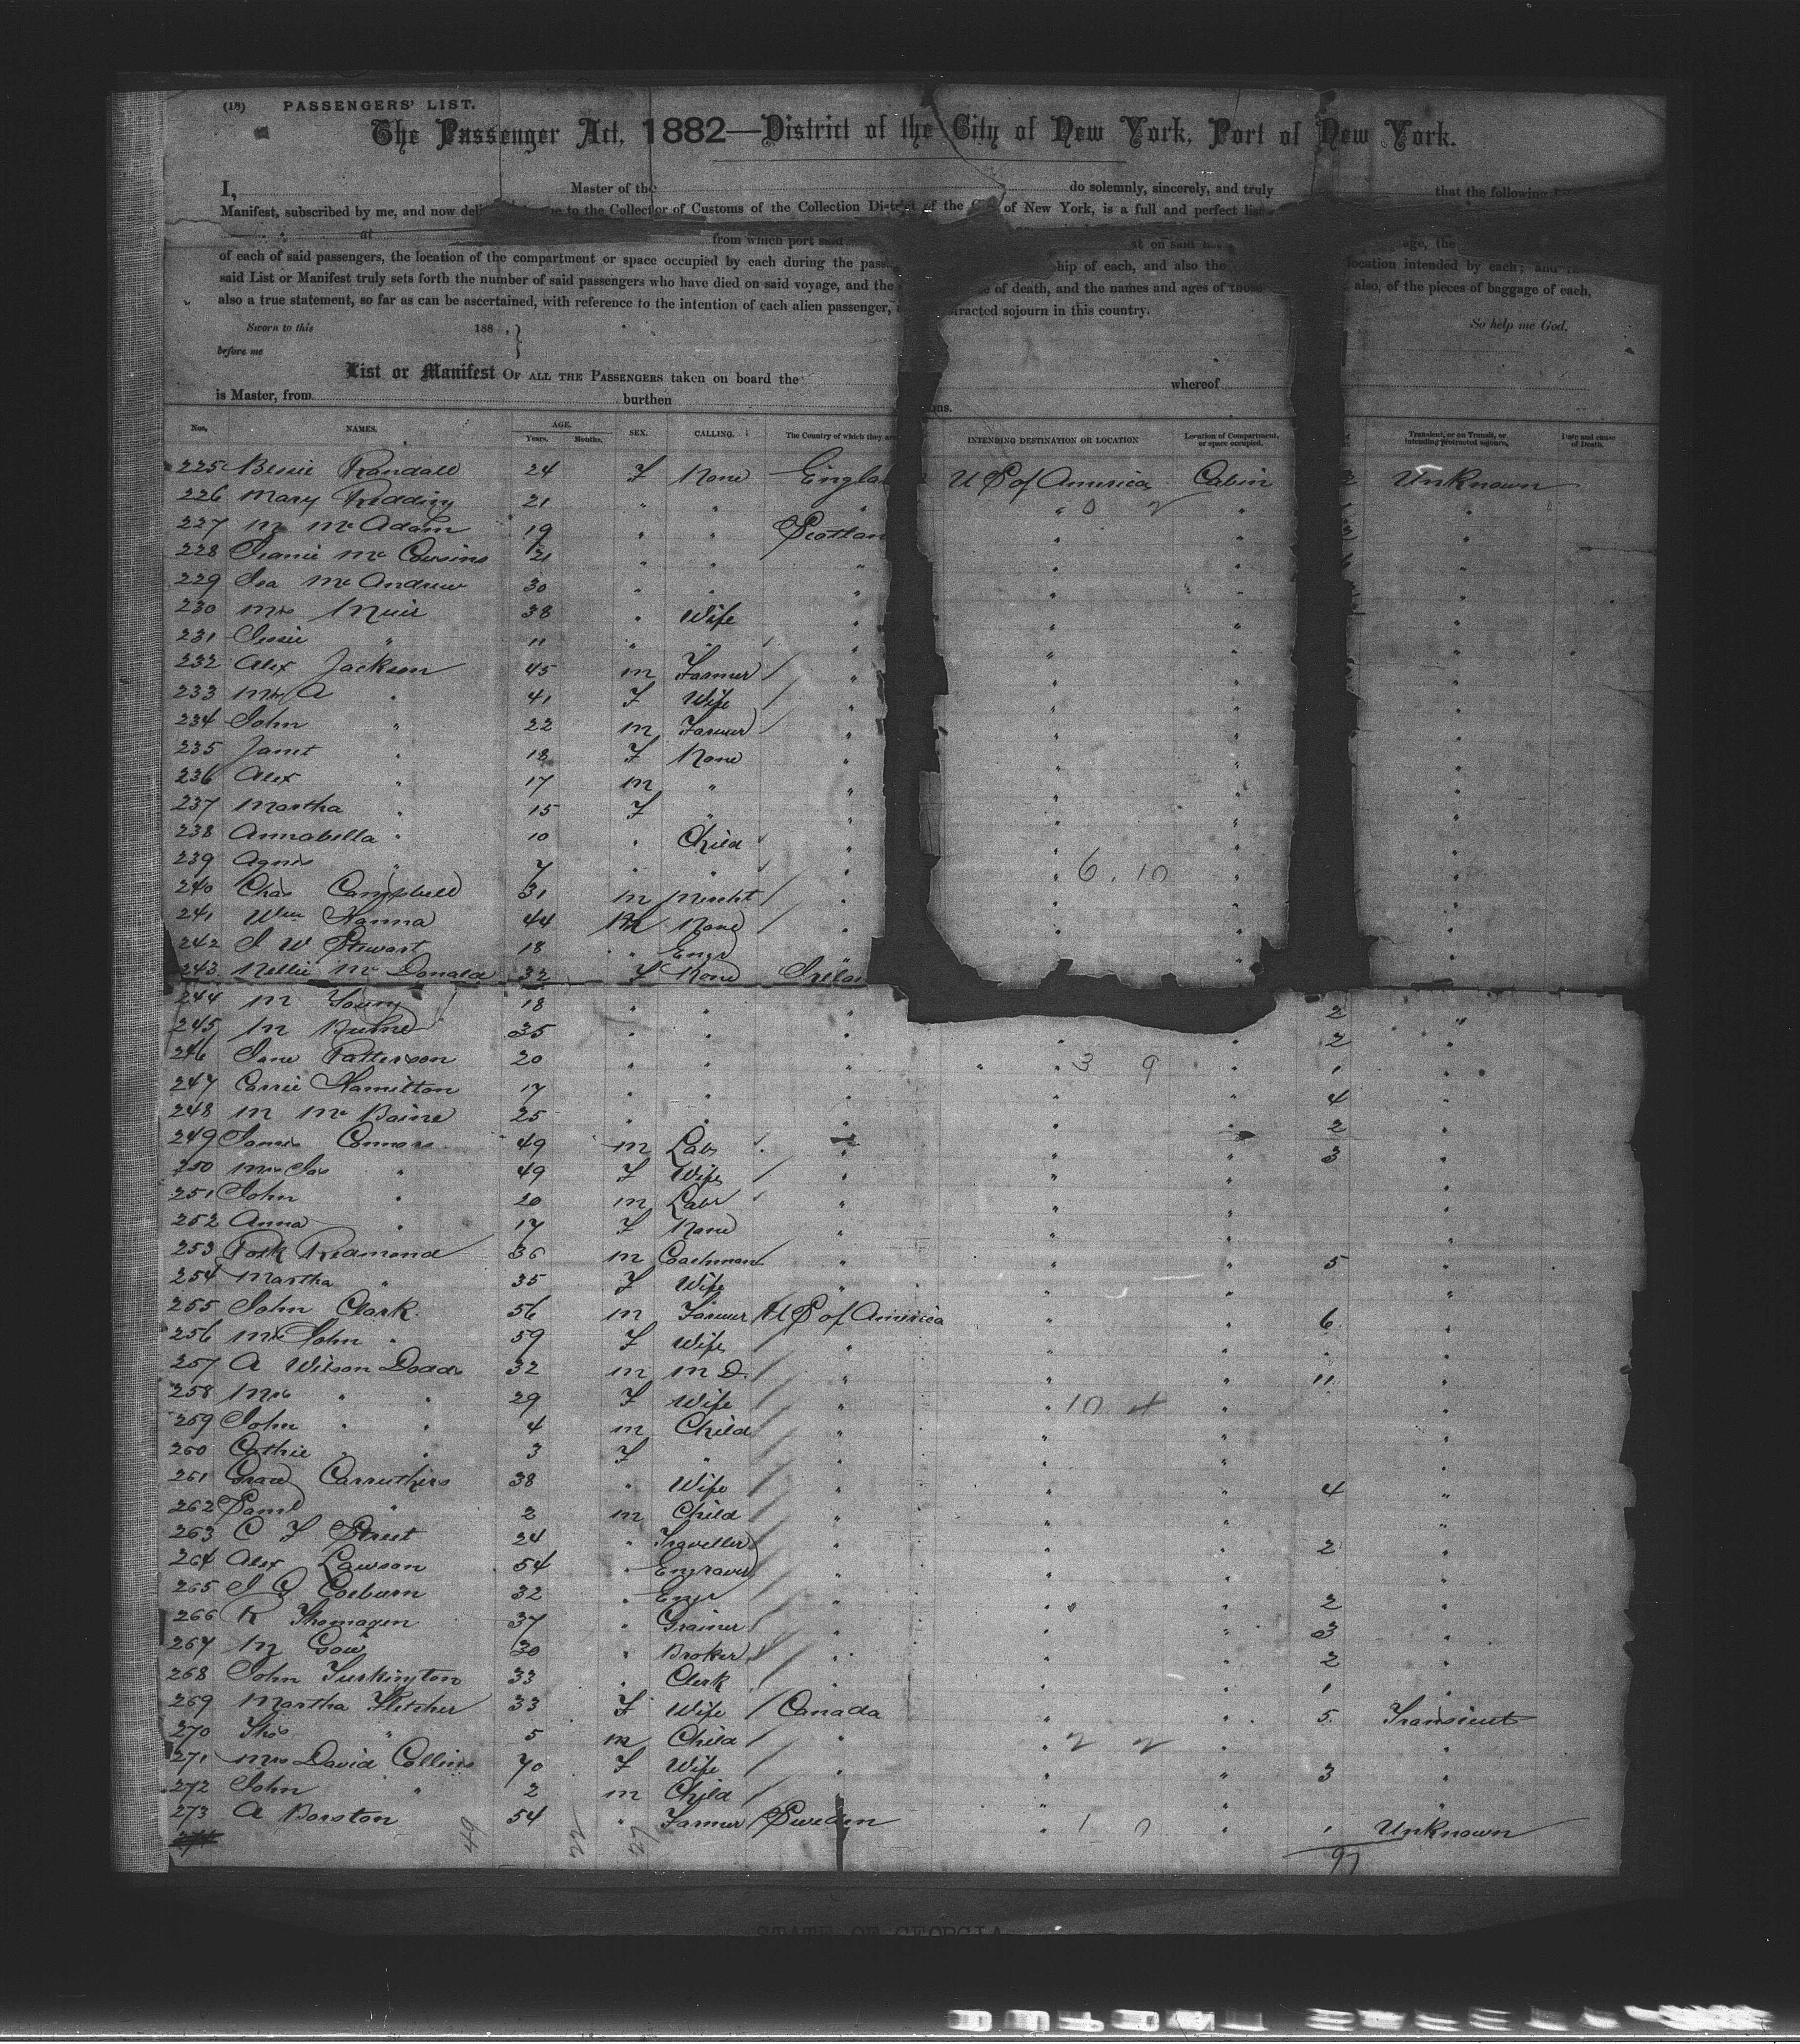 (18) PASSENGERS' LIST.
The Passenger Act, 1882—District of the City of New York, Port of New York.
I, Master of the do solemnly, sincerely, and truly that the following
Manifest, subscribed by me, and now to the Collector of Customs of the Collection District of the of New York, is a full and perfect list
at from which port said at on said
of each of said passengers, the location of the compartment or space occupied by each during the of each, and also the location intended by each; and
said List or Manifest truly sets forth the number of said passengers who have died on said voyage, and the of death, and the names and ages of those also, of the pieces of baggage of each,
also a true statement, so far as can be ascertained, with reference to the intention of each alien passenger, sojourn in this country.
Sworn to this 188 , } So help me God.
before me
List or Manifest OF ALL THE PASSENGERS taken on board the whereof
is Master, from burthen
Nos. NAMES. AGE. Years. Months. SEX. CALLING. The Country of which they INTENDING DESTINATION OR LOCATION Location of Compartment, or space occupied. Transient, or in Transit, or intending protracted sojourn. Date and cause of Death.
225 Bessie Randall 24 F None U S of America Cabin Unknown
226 Mary Redding 21 " " " " 0 2 " "
227 M McAdam 19 " " " " "
228 Jeanie Mc Cousins 21 " " " " " "
229 Isa McAndrew 30 " " " " " "
230 Mrs Muir 38 " Wife " " " "
231 Jessie " 11 " " " " " "
232 Alex Jackson 45 M Farmer " " " "
233 Mrs A " 41 F Wife " " " "
234 John " 22 M Farmer " " " "
235 Janet " 18 F None " " " "
236 Alex " 17 M " " " " "
237 Martha " 15 F " " " " "
238 Annabella " 10 " Child " " " "
239 Agnes " 7 " " " " 6 . 10 " "
240 Chas Campbell 31 M Mercht " " " "
241 Wm Hanna 44 M None " " " "
242 J W Stewart 18 " Engr " "
243 Nellie Mc Donald 32 F None "
244 M Young 18 " " " 2 "
245 M 35 " " " " " 2 "
246 Jane Patterson 20 " " " " 3 9 " 1 "
247 Carrie Hamilton 17 " " " " " 4 "
248 M Mc Baine 25 " " " " " 2 "
249 James Connors 49 M Labr " " " 3 "
250 Mrs Jas " 49 F Wife " " " "
251 John " 20 M Labr " " " "
252 Anna " 17 F None " " " "
253 Patk Redmond 36 M Coachman " " " 5 "
254 Martha " 35 F Wife " " " "
255 John Clark 56 M Farmer U S of America " " 6 "
256 Mrs John " 59 F Wife " " " " "
257 A Wilson Dodds 32 M M D. " " " 11 "
258 Mrs " " 29 F Wife " " 10 4 " "
259 John " " 4 M Child " " " "
260 Cathie " " 3 F " " " " "
261 Grace Carruthers 38 " Wife " " " 4 "
262 Saml " 2 M Child " " " "
263 C F Street 24 " Traveller " " " 2 "
264 Alex Lawson 54 " Engraver " " " "
265 J G Coeburn 32 " Engr " " " 2 "
266 R 37 " Grainer " " " 3 "
267 M Gow 30 " Broker " " " 2 "
268 John Turkington 33 " Clerk " " " 1 "
269 Martha Fletcher 33 F Wife Canada " " 5 Transient
270 Thos " 5 M Child " " 2 2 " "
271 Mrs David Collins 70 F Wife " " " 3 "
272 John " 2 M Child " " " "
273 A Borston 54 " Farmer Sweden " 1 0 " 1 Unknown
97
STATE OF GEORGIA